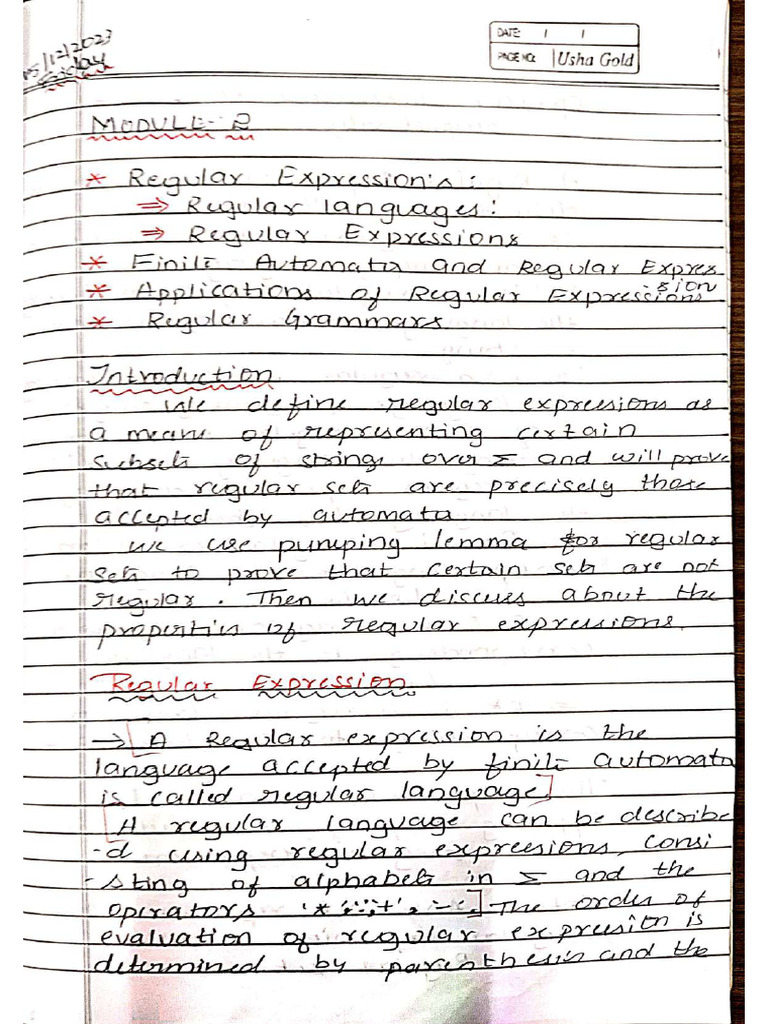 15/12/2023
Friday
DATE: / /
PAGE NO: Usha Gold
MODULE - 2
* Regular Expression's :
⇒ Regular languages :
⇒ Regular Expressions
* Finite Automata and Regular Expres
sion
* Applications of Regular Expressions
* Regular Grammars
Introduction
We define regular expressions as
a means of representing certain
subsets of strings over Σ and will prove
that regular sets are precisely those
accepted by automata
we use pumping lemma for regular
sets to prove that certain sets are not
regular. Then we discuss about the
properties of regular expressions.
Regular Expression
→ [A Regular expression is the
language accepted by finite automata
is called regular language.]
[A regular language can be describe
-d using regular expressions, consi
-sting of alphabets in Σ and the
operators The order of
evaluation of regular expression is
determined by parenthesis and the